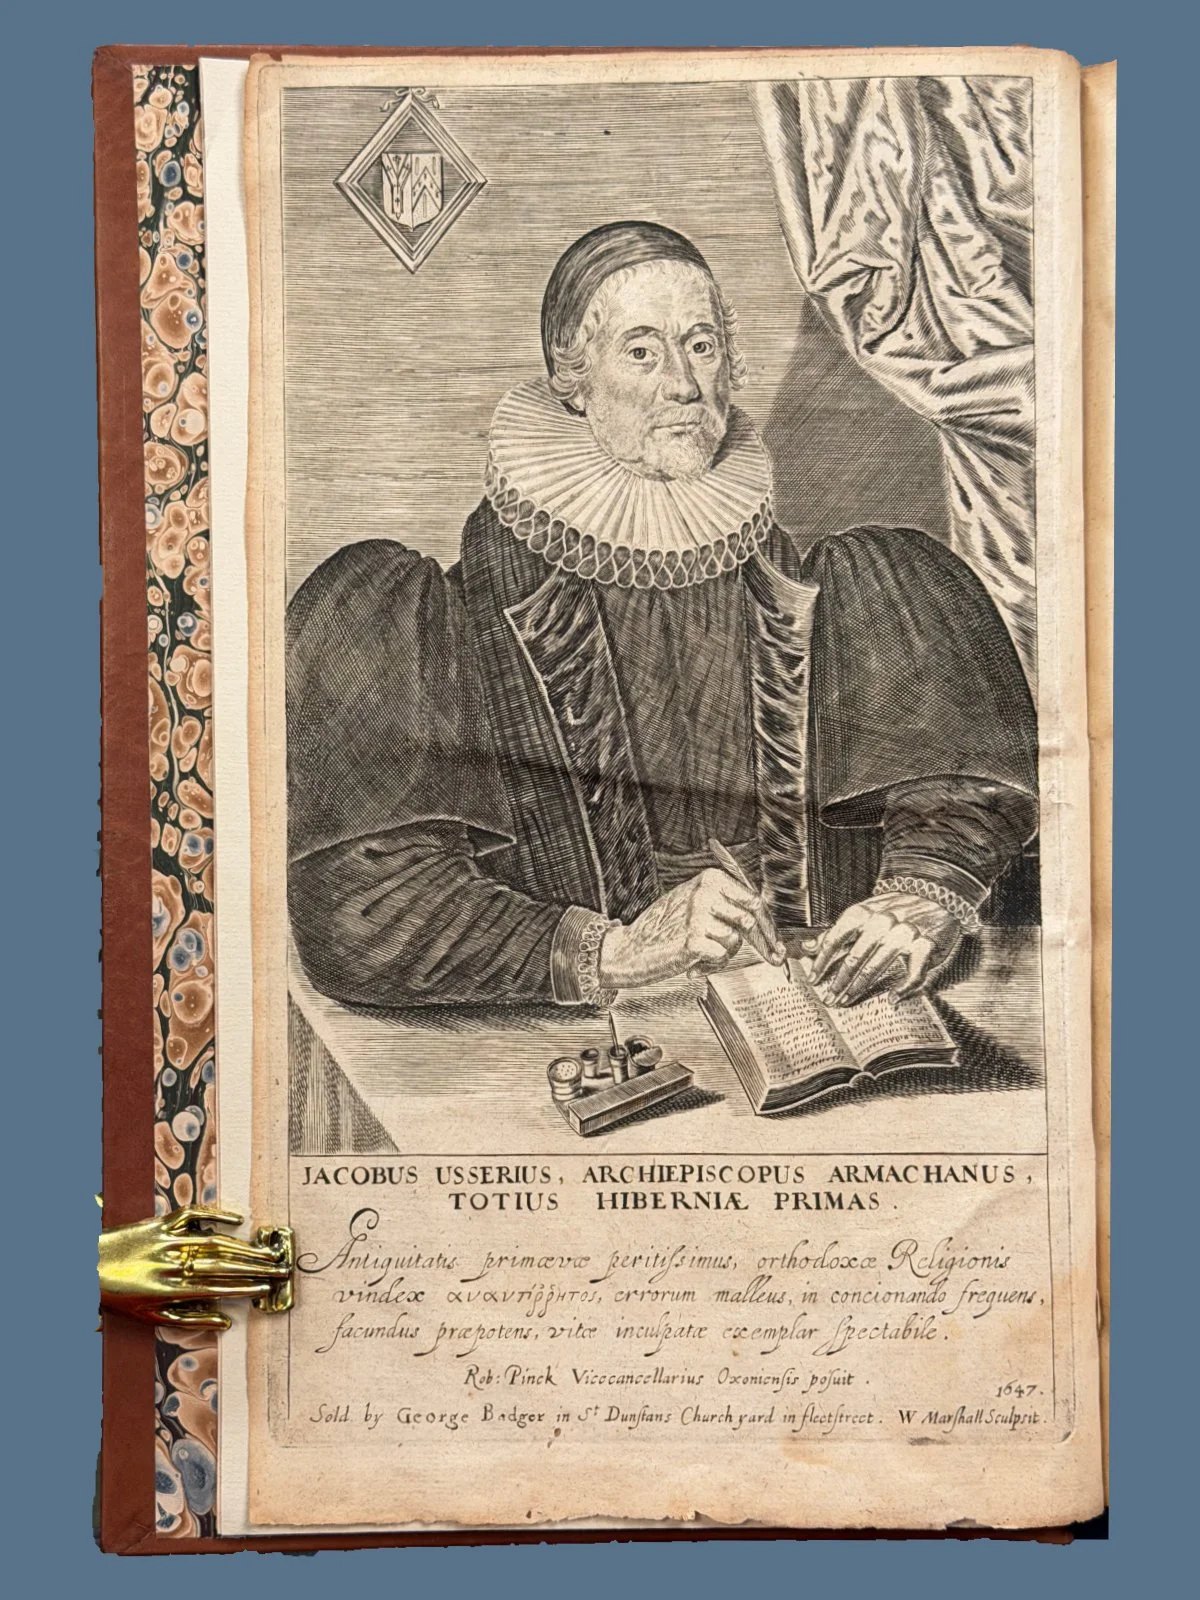 JACOBUS USSERIUS, ARCHIEPISCOPUS ARMACHANUS,
TOTIUS HIBERNIÆ PRIMAS.
Antiquitatis primævæ peritiſsimus, orthodoxæ Religionis
vindex αναντίῤῥητος, errorum malleus, in concionando frequens,
facundus præpotens, vitæ inculpatæ exemplar ſpectabile.
Rob: Pinck Vicecancellarius Oxonienſis poſuit.
1647.
Sold by George Badger in St Dunſtans Church yard in fleetſtreet. W Marſhall Sculpsit.